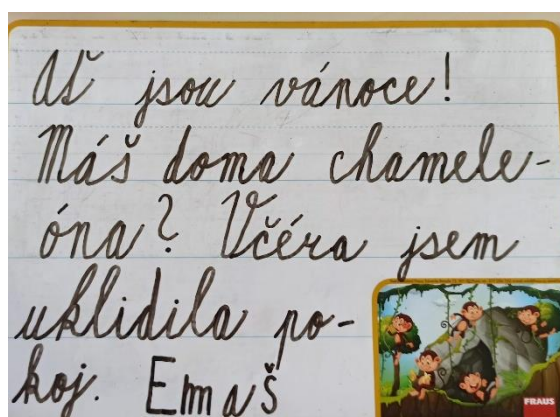 Ať jsou vánoce!
Máš doma chamele-
óna? Včéra jsem
uklidila po-
koj. Emaš
FRAUS